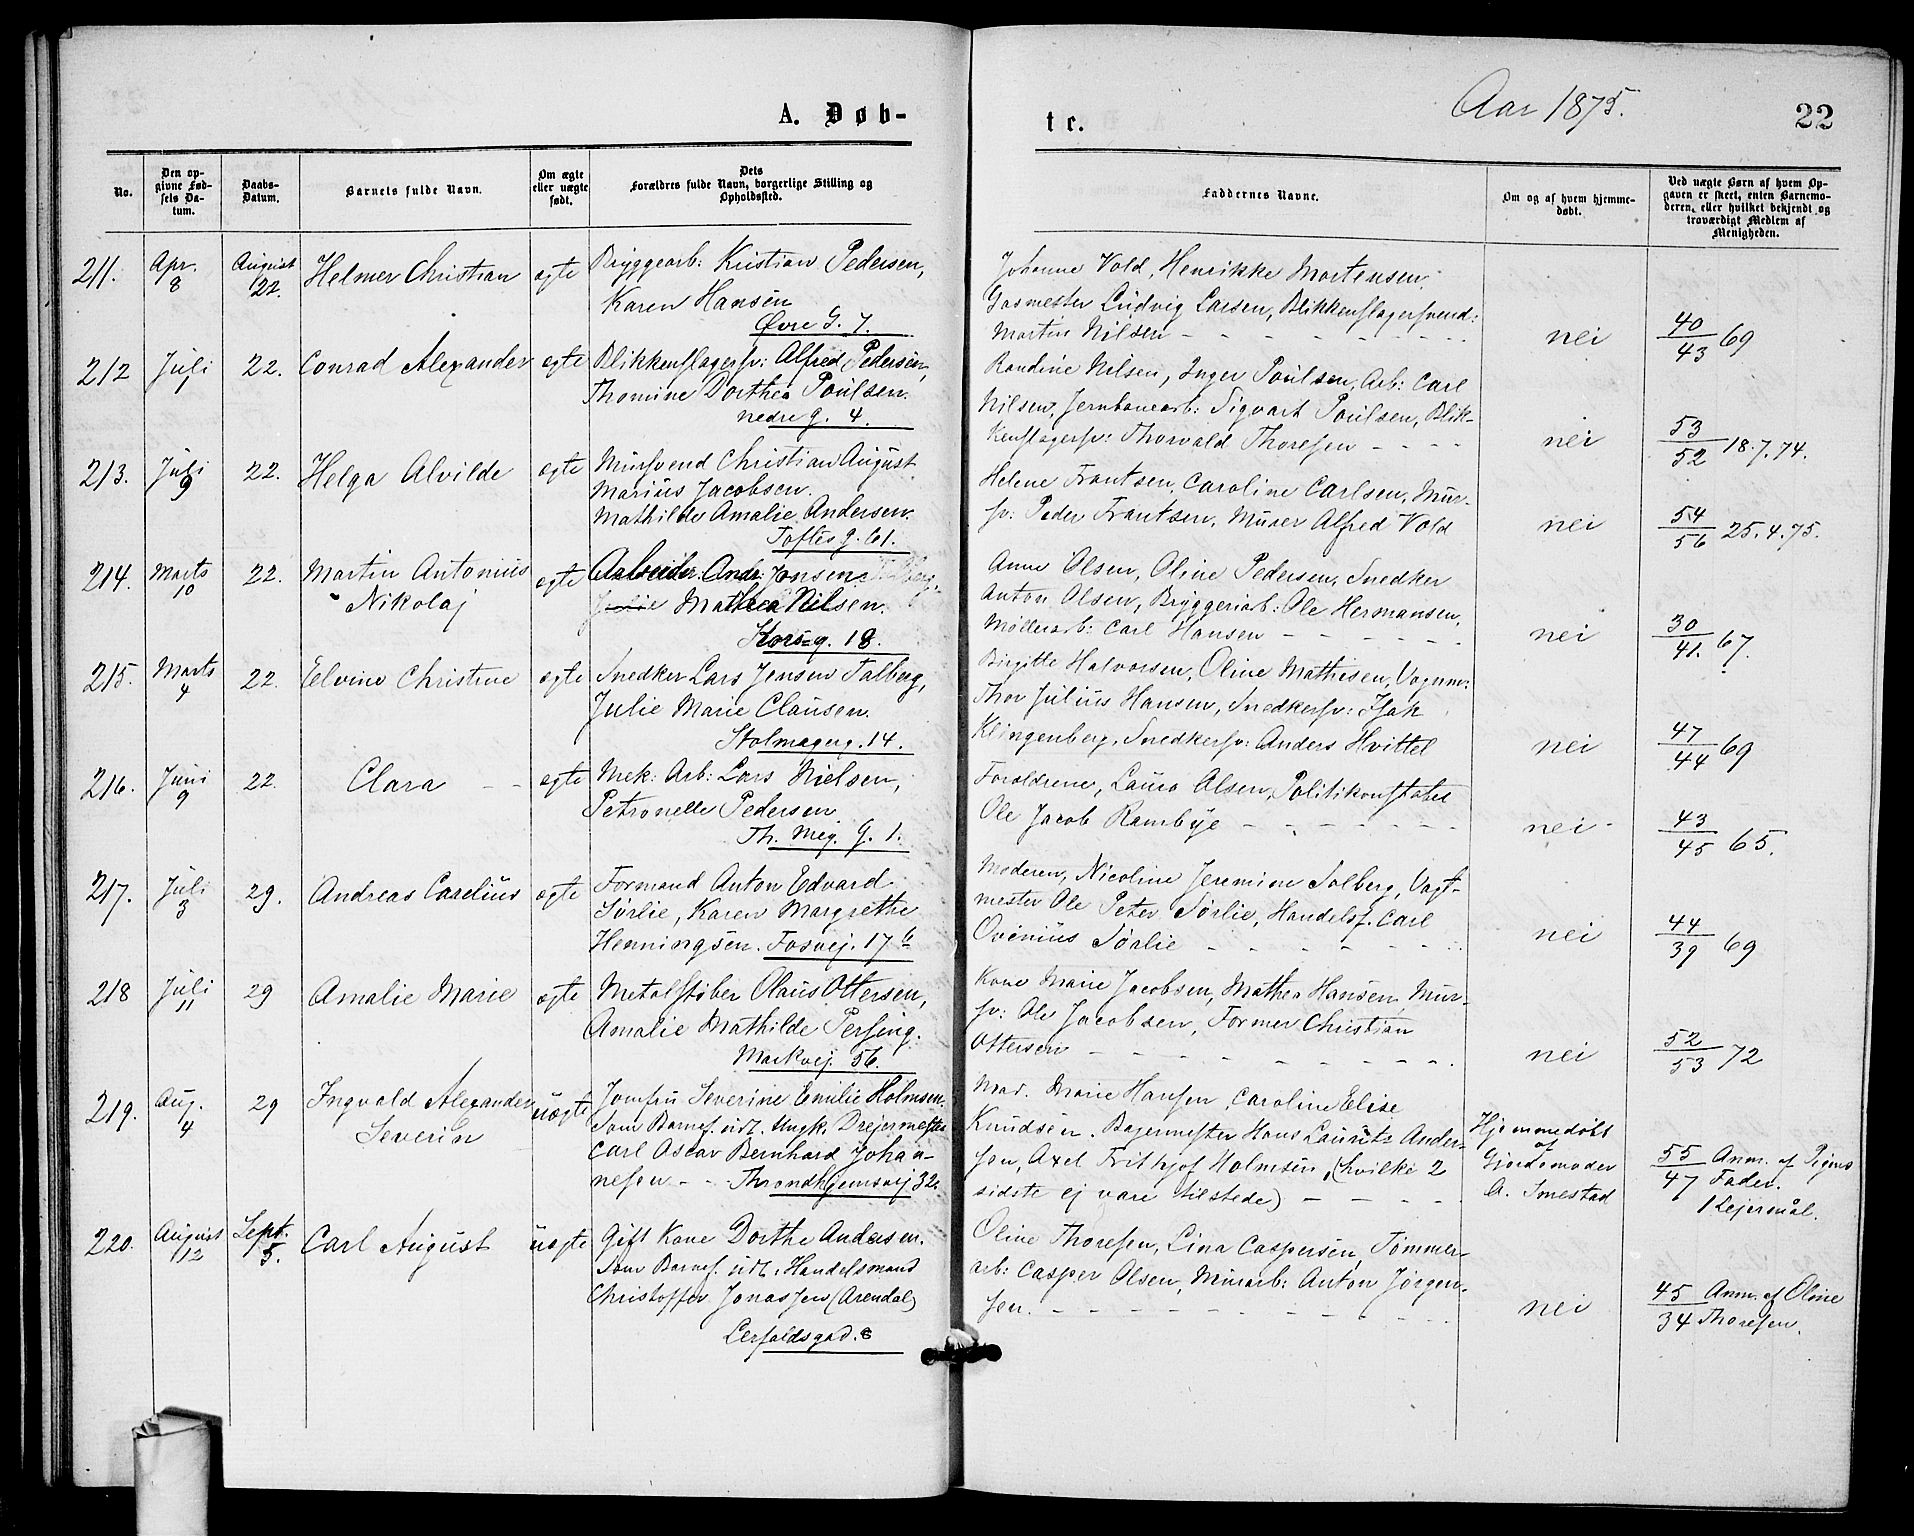 A. Døb-
No.
Den op-
givne Fød-
sels Da-
tum.
Daabs-
Datum.
Barnets fulde Navn.
Om ægte
eller uægte
født.
Dets
Forældres fulde Navn, borgerlige Stilling og
Opholdssted.
211. Apr. 8 August 22. Helmer Christian ægte Bryggearb: Kristian Pedersen,
Karen Hansen
Øvre G. 7.
212 Juli 1 22. Conrad Alexander ægte Blikkenslagersv: Alfred Pedersen,
Thomine Dorthea Poulsen.
nedre g. 4.
213. Juli 9 22. Helga Alvilde ægte Mursvend Christian August
Marius Jacobsen.
Mathilde Amalie Andersen.
Toftes g. 61.
214. Marts 10 22. Martin Antonius ægte Arbeider Andr: Jensen
Nikolaj Mathea Nilsen.
Kors-g. 18.
215. Marts 4 22. Elvine Christine ægte Snedker Lars Jensen Talberg,
Julie Marie Clausen.
Stolmagerg. 14.
216. Juni 9 22. Clara - - ægte Mek: Arb: Lars Nielsen,
Petronelle Pedersen
Th. Mey. G. 1.
217. Juli 3 29. Andreas Carelius ægte Formand Anton Edvard
Sørlie, Karen Margrethe
Henningsen. Fosvej. 17 b
218 Juli 11 29 Amalie Marie ægte Metalstøber Olaus Ottersen,
Amalie Mathilde Persing.
Markvej. 56.
219. Aug. 4 29 Ingvald Alexander uægte Jomfru Severine Emilie Holmsen.
Severin Som Barnef. udl. Ungk. Drejermester
Carl Oscar Bernhard Johan-
nesen - - Throndhjemsvej 32.
220. August 12 Sept. 5. Carl August uægte Gift Kone Dorthe Andersen.
Som Barnef. udl. Handelsmand
Christoffer Jonassen (Arendal)
Lerfaldsgad. 8
te.
Aar 1875.
22
Faddernes Navne.
Om og af hvem hjemme-
døbt.
Ved uægte Børn af hvem Op-
gaven er skeet, enten Barnemo-
deren, eller hvilket bekjendt og
troværdigt Medlem af
Menigheden.
Johanne Vold, Henrikke Mortensen.
Gasmester Ludvig Larsen, Blikkenslagersvend:
Martin Nilsen - - - - - - nei 40/43 69
Randine Nilsen, Inger Poulsen, Arb: Carl
Nilsen, Jernbanearb: Sigvart Poulsen, Blik-
kenslagersv: Thorvald Thoresen - - - - nei 53/52 18.7.74.
Helene Frantsen, Caroline Carlsen, Mur-
sv: Peder Frantsen, Murer Alfred Vold nei 54/56 25.4.75.
Anne Olsen, Oline Pedersen, Snedker
Anton Olsen, Bryggeriarb: Ole Hermansen,
Møllerarb: Carl Hansen - - - - - nei 30/41. 67.
Birgitte Halvorsen, Oline Mathisen, Vognm:
Thor Julius Hansen, Snedkersv: Isak
Klingenberg, Snedkersv: Anders Hvittel nei 47/44 69
Forældrene, Laura Olsen, Politikonstabel
Ole Jacob Rambye - - - - - - nei 43/45 65.
Moderen, Nicoline Jeremine Solberg, Vagt-
mester Ole Peter Sørlie, Handelsf. Carl
Ovenius Sørlie - - - - - nei 44/39 69
Kone Marie Jacobsen, Mathea Hansen, Mur-
sv: Ole Jacobsen, Former Christian
Ottersen - - - - - - - nei 52/53 72
Mad. Marie Hansen, Caroline Elise
Knudsen. Bagermester Hans Laurits Ander-
sen, Axel Frithjof Holmsen, (hvilke 2
sidste ej vare tilstede) - - - -
Hjemmedøbt
af
Gjordemoder
A. Smestad
55/47 Anm. af Pigens
Fader.
1 Lejermål.
Oline Thoresen, Lina Caspersen, Tømmer-
arb: Casper Olsen, Murarb: Anton Jørgen-
sen. - - - - - - - nei 45/34 Anm. af Oline
Thoresen.